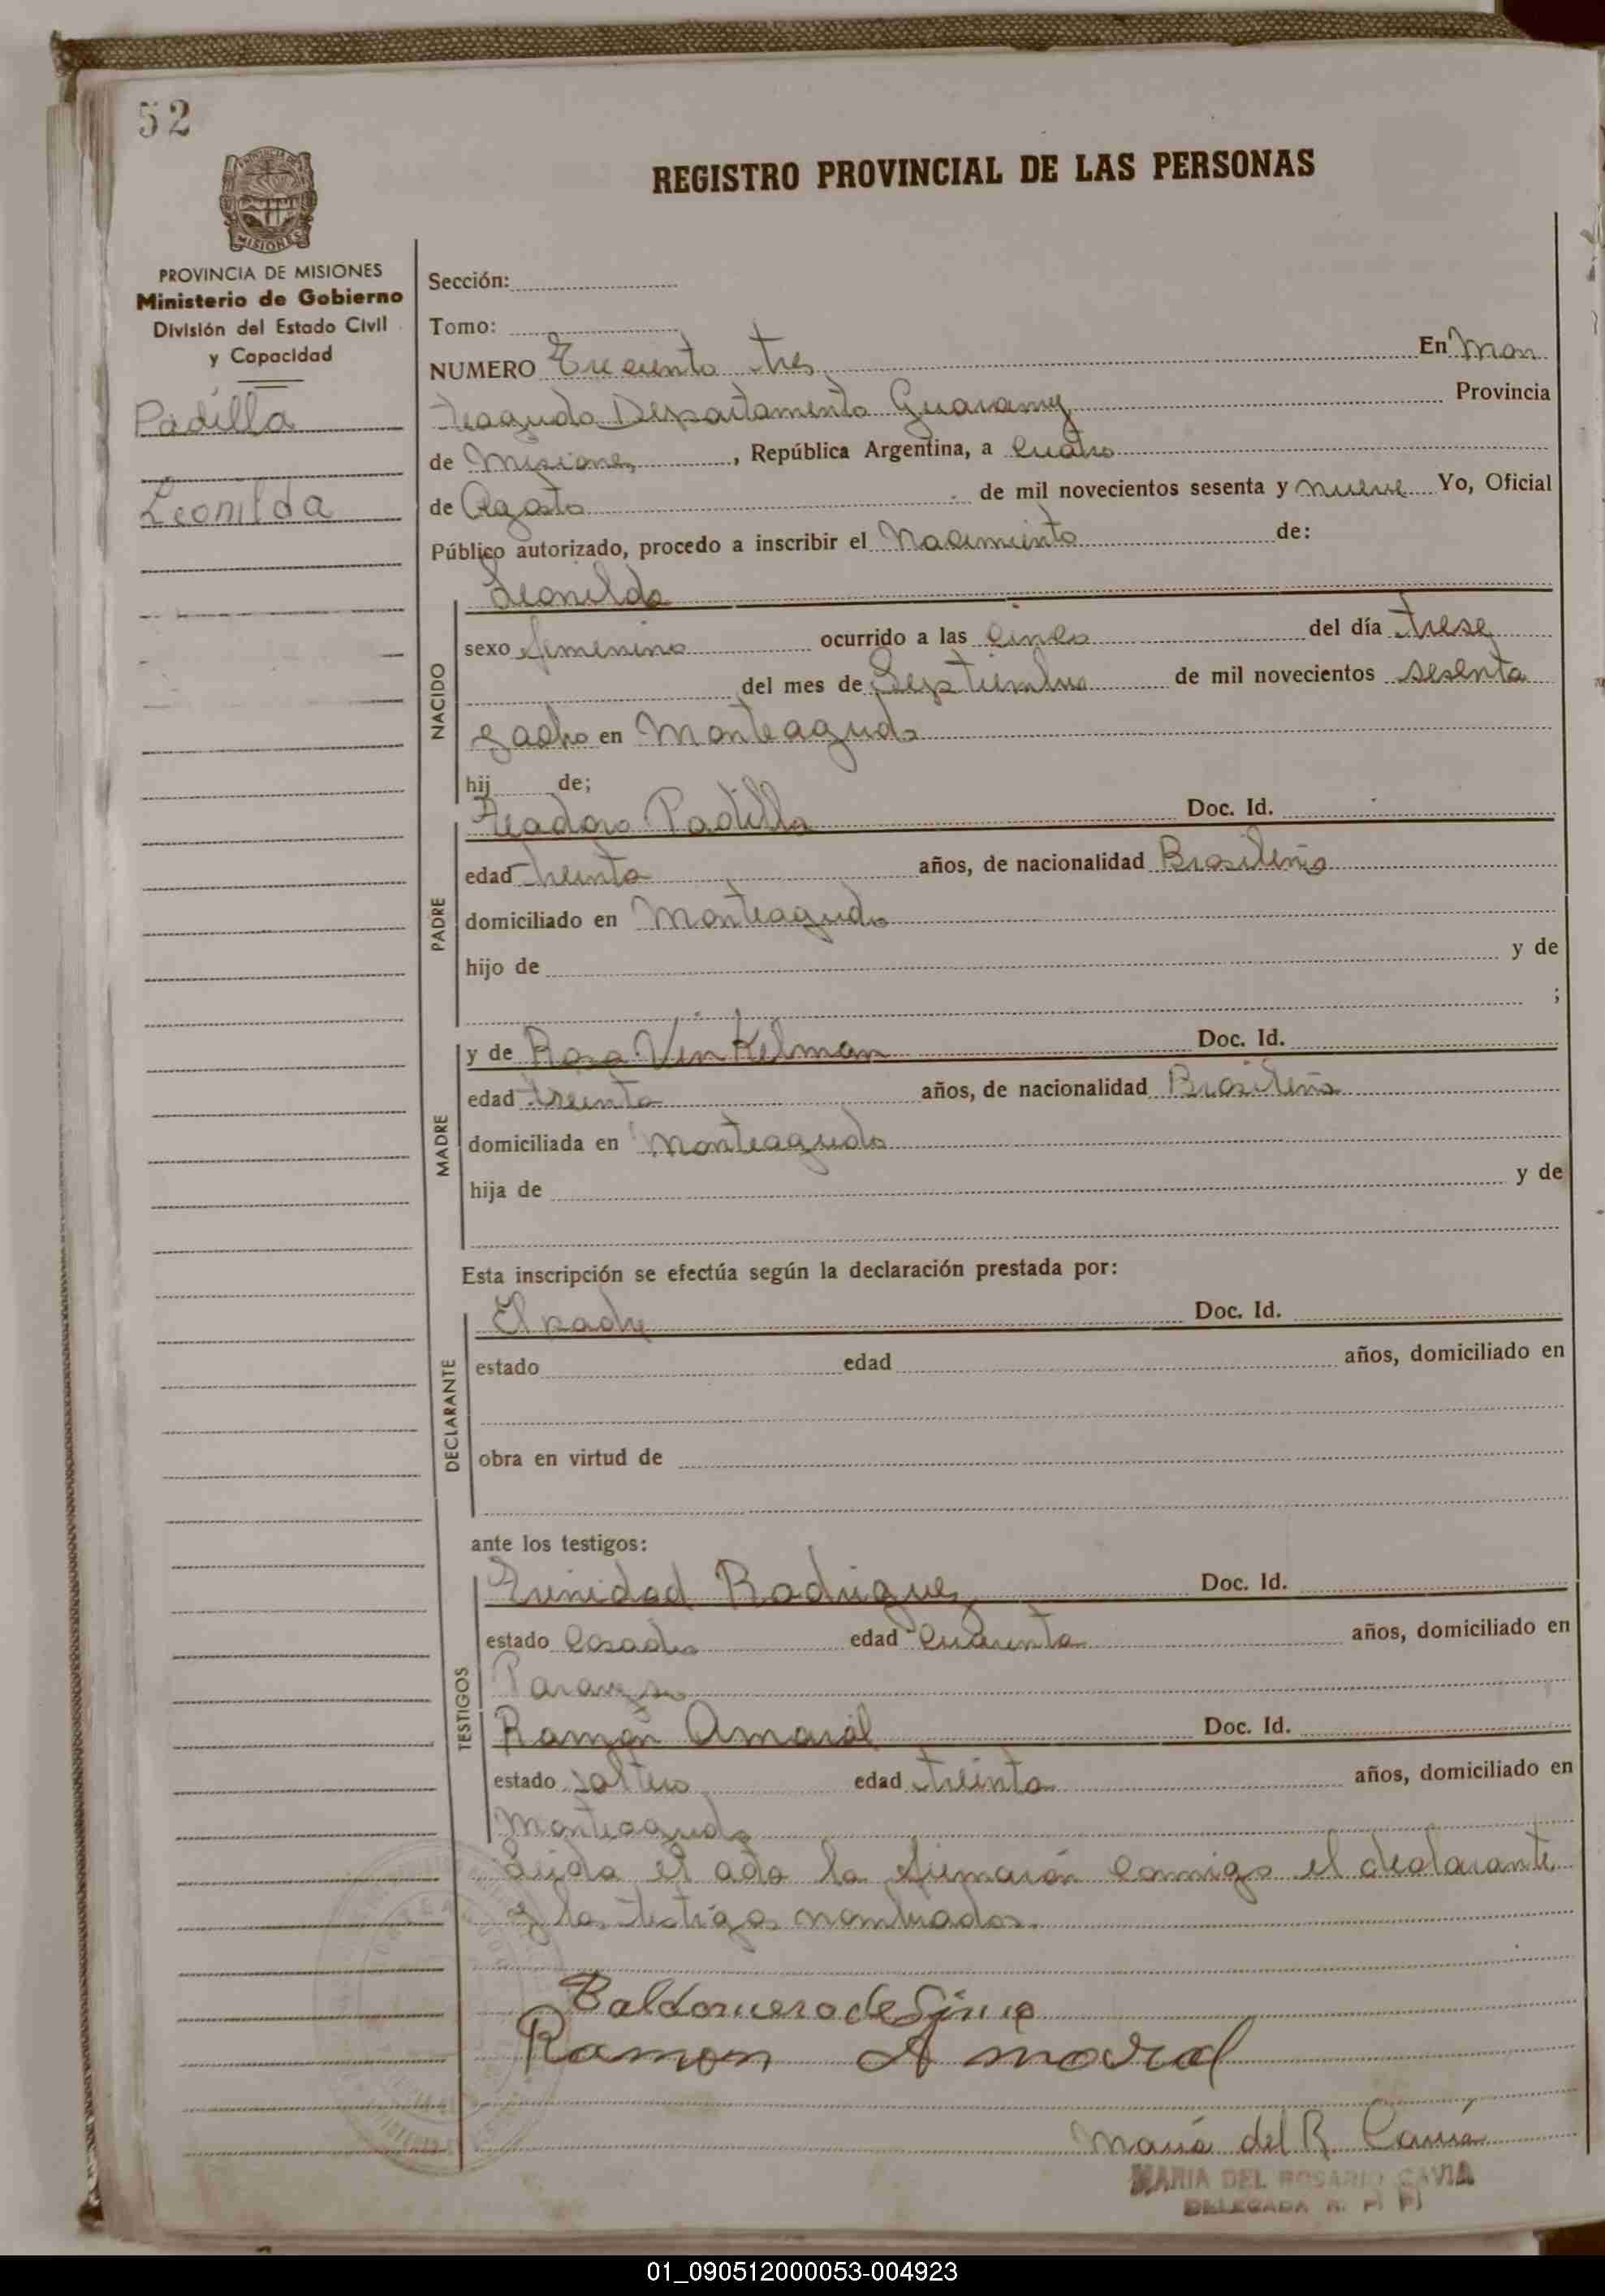 52
REGISTRO PROVINCIAL DE LAS PERSONAS
MISIONES
PROVINCIA DE MISIONES
Ministerio de Gobierno
División del Estado Civil
y Capacidad
Padilla
Leonilda
Sección:
Tomo:
NUMERO Treciento tres En Mon
teagudo Departamento Guarany Provincia
de Misiones, República Argentina, a cuatro
de Agosto de mil novecientos sesenta y nueve Yo, Oficial
Público autorizado, procedo a inscribir el Nacimiento de:
NACIDO
Leonilda
sexo femenino ocurrido a las cinco del día trese
del mes de Septiembre de mil novecientos sesenta
y ocho en Monteagudo
hij de;
PADRE
Teadoro Padilla Doc. Id.
edad treinta años, de nacionalidad Brasileño
domiciliado en Monteagudo
hijo de y de
;
MADRE
y de Rosa Vinkelman Doc. Id.
edad treinta años, de nacionalidad Brasileña
domiciliada en Monteagudo
hija de y de
Esta inscripción se efectúa según la declaración prestada por:
DECLARANTE
El padre Doc. Id.
estado edad años, domiciliado en
obra en virtud de
ante los testigos:
TESTIGOS
Trinidad Rodriguez Doc. Id.
estado casado edad cuarenta años, domiciliado en
Ramón Amaral Doc. Id.
estado soltero edad treinta años, domiciliado en
Monteagudo
Leida el acta la firmarón conmigo el declarante
y los testigos nombrados.
Baldomero de
Ramon Amaral
Maria del R. Cavia
MARIA DEL ROSARIO CAVIA
DELEGADA R. P. P.
01_090512000053-004923